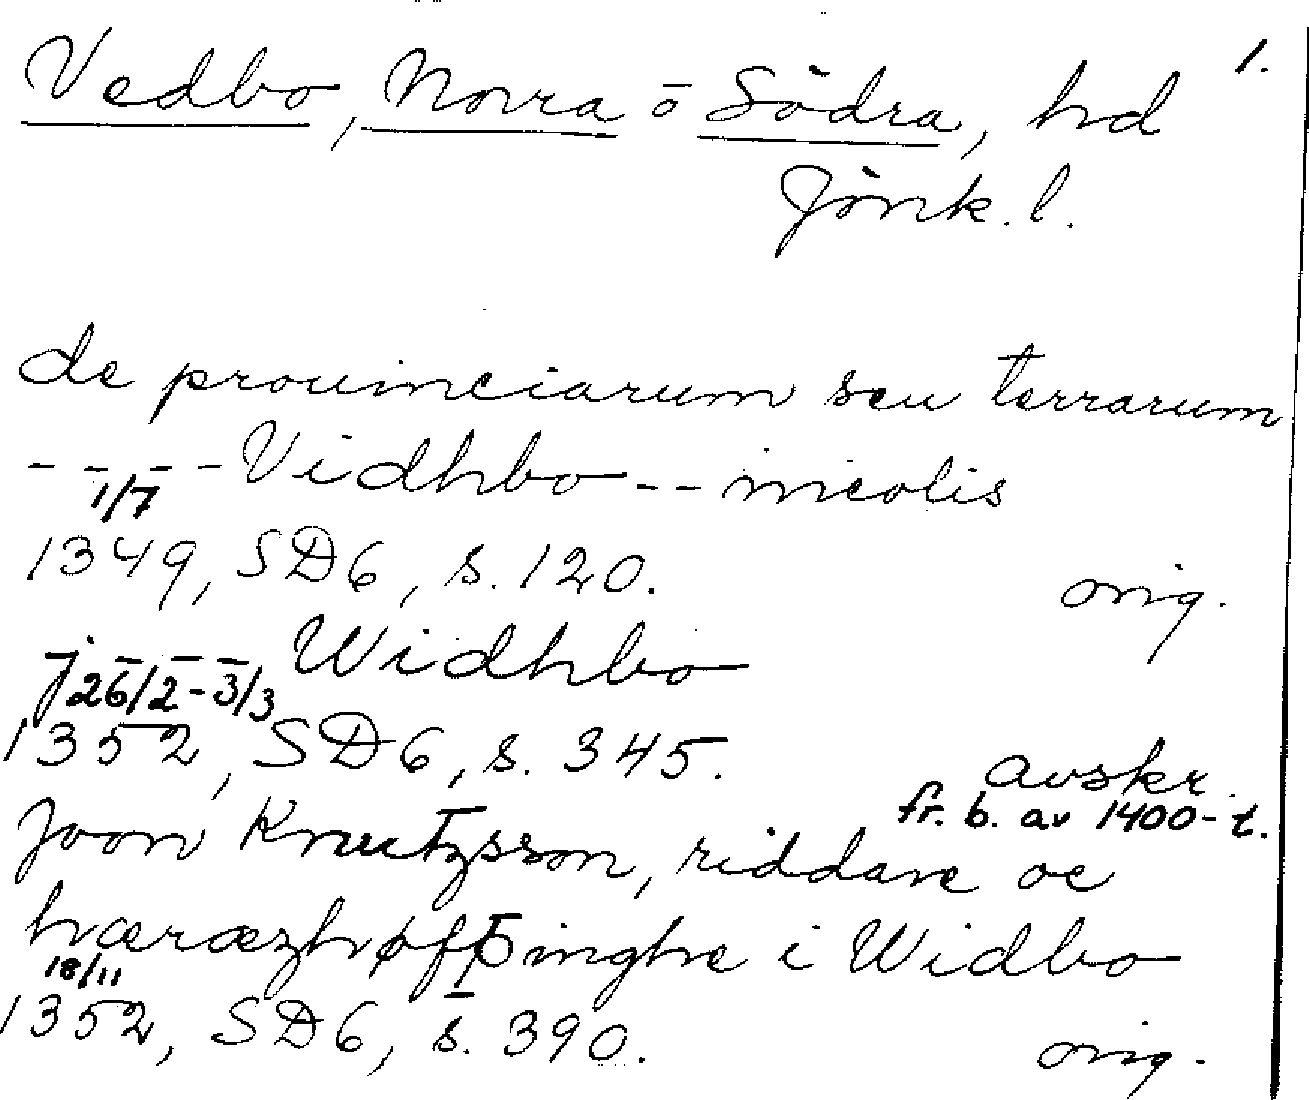 Vedbo, Norra o Södra, hd 1.
Jönk. l.
de prouinciarum seu terrarum
- - - - Vidhbo - - incolis
1/7
1349, SD6, s. 120. orig.
j - - - Widhbo
26/2-3/3
1352, SD6, s. 345. avskr.
fr. b. av 1400-t.
Joon Knutzsson, riddare oc
hæræzhøffþinghe i Widbo
18/11
1352, SD6, s. 390. orig.